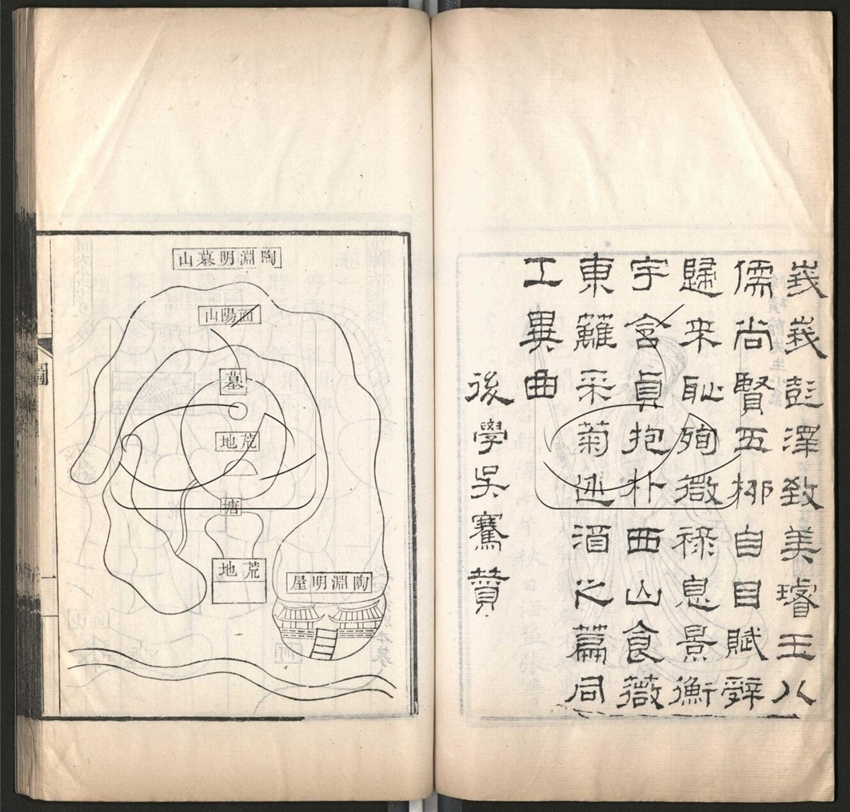 峩峩彭澤致美璿玉八
儒尚賢五柳自目賦辭
歸来恥殉微祿息景衡
宇含貞抱朴西山食薇
東籬采菊述酒之篇同
工異曲
後學吳騫贊
陶淵明墓山
面陽山
墓
荒地
塘
荒地
陶淵明屋
圖